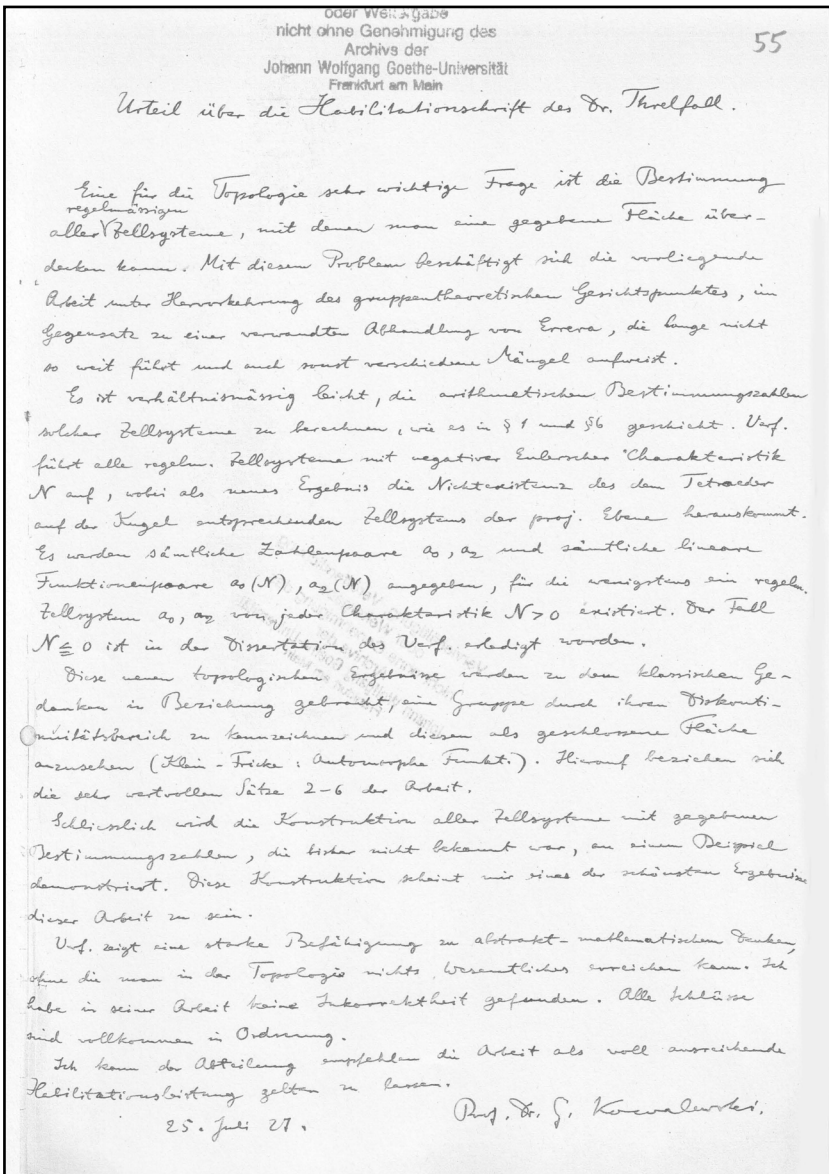 oder Weitergabe
nicht ohne Genehmigung des
Archivs der
Johann Wolfgang Goethe-Universität
Frankfurt am Main
55
Urteil über die Habilitationsschrift des Dr. Threlfall.
Eine für die Topologie sehr wichtige Frage ist die Bestimmung
regelmässigen
aller Zellsysteme, mit denen man eine gegebene Fläche über-
decken kann. Mit diesem Problem beschäftigt sich die vorliegende
Arbeit unter Hervorkehrung des gruppentheoretischen Gesichtspunktes, im
Gegensatz zu einer verwandten Abhandlung von Errera, die lange nicht
so weit führt und auch sonst verschiedene Mängel aufweist.
Es ist verhältnismässig leicht, die arithmetischen Bestimmungszahlen
solcher Zellsysteme zu berechnen, wie es in § 1 und §6 geschieht. Verf.
führt alle regelm. Zellsysteme mit negativer Eulerscher Charakteristik
N auf, wobei als neues Ergebnis die Nichtexistenz des dem Tetraeder
auf der Kugel entsprechenden Zellsystems der proj. Ebene herauskommt.
Es werden sämtliche Zahlenpaare a₀, a₂ und sämtliche lineare
Funktionenpaare a₀(N), a₂(N) angegeben, für die wenigstens ein regelm.
Zellsystem a₀, a₂ von jeder Charakteristik N>0 existiert. Der Fall
N ≦ 0 ist in der Dissertation des Verf. erledigt worden.
Diese neuen topologischen Ergebnisse werden zu dem klassischen Ge-
danken in Beziehung gebracht, eine Gruppe durch ihren Diskonti-
nuitätsbereich zu kennzeichnen und diesen als geschlossene Fläche
anzusehen (Klein-Fricke: Automorphe Funkt.). Hierauf beziehen sich
die sehr wertvollen Sätze 2-6 der Arbeit.
Schliesslich wird die Konstruktion aller Zellsysteme mit gegebenen
Bestimmungszahlen, die bisher nicht bekannt war, an einem Beispiel
demonstriert. Diese Konstruktion scheint mir eines der schönsten Ergebnisse
dieser Arbeit zu sein.
Verf. zeigt eine starke Befähigung zu abstrakt-mathematischem Denken,
ohne die man in der Topologie nichts Wesentliches erreichen kann. Ich
habe in seiner Arbeit keine Inkorrektheit gefunden. Alle Schlüsse
sind vollkommen in Ordnung.
Ich kann der Abteilung empfehlen die Arbeit als voll ausreichende
Habilitationsleistung gelten zu lassen.
25. Juli 27.
Prof. Dr. G. Kowalewski.